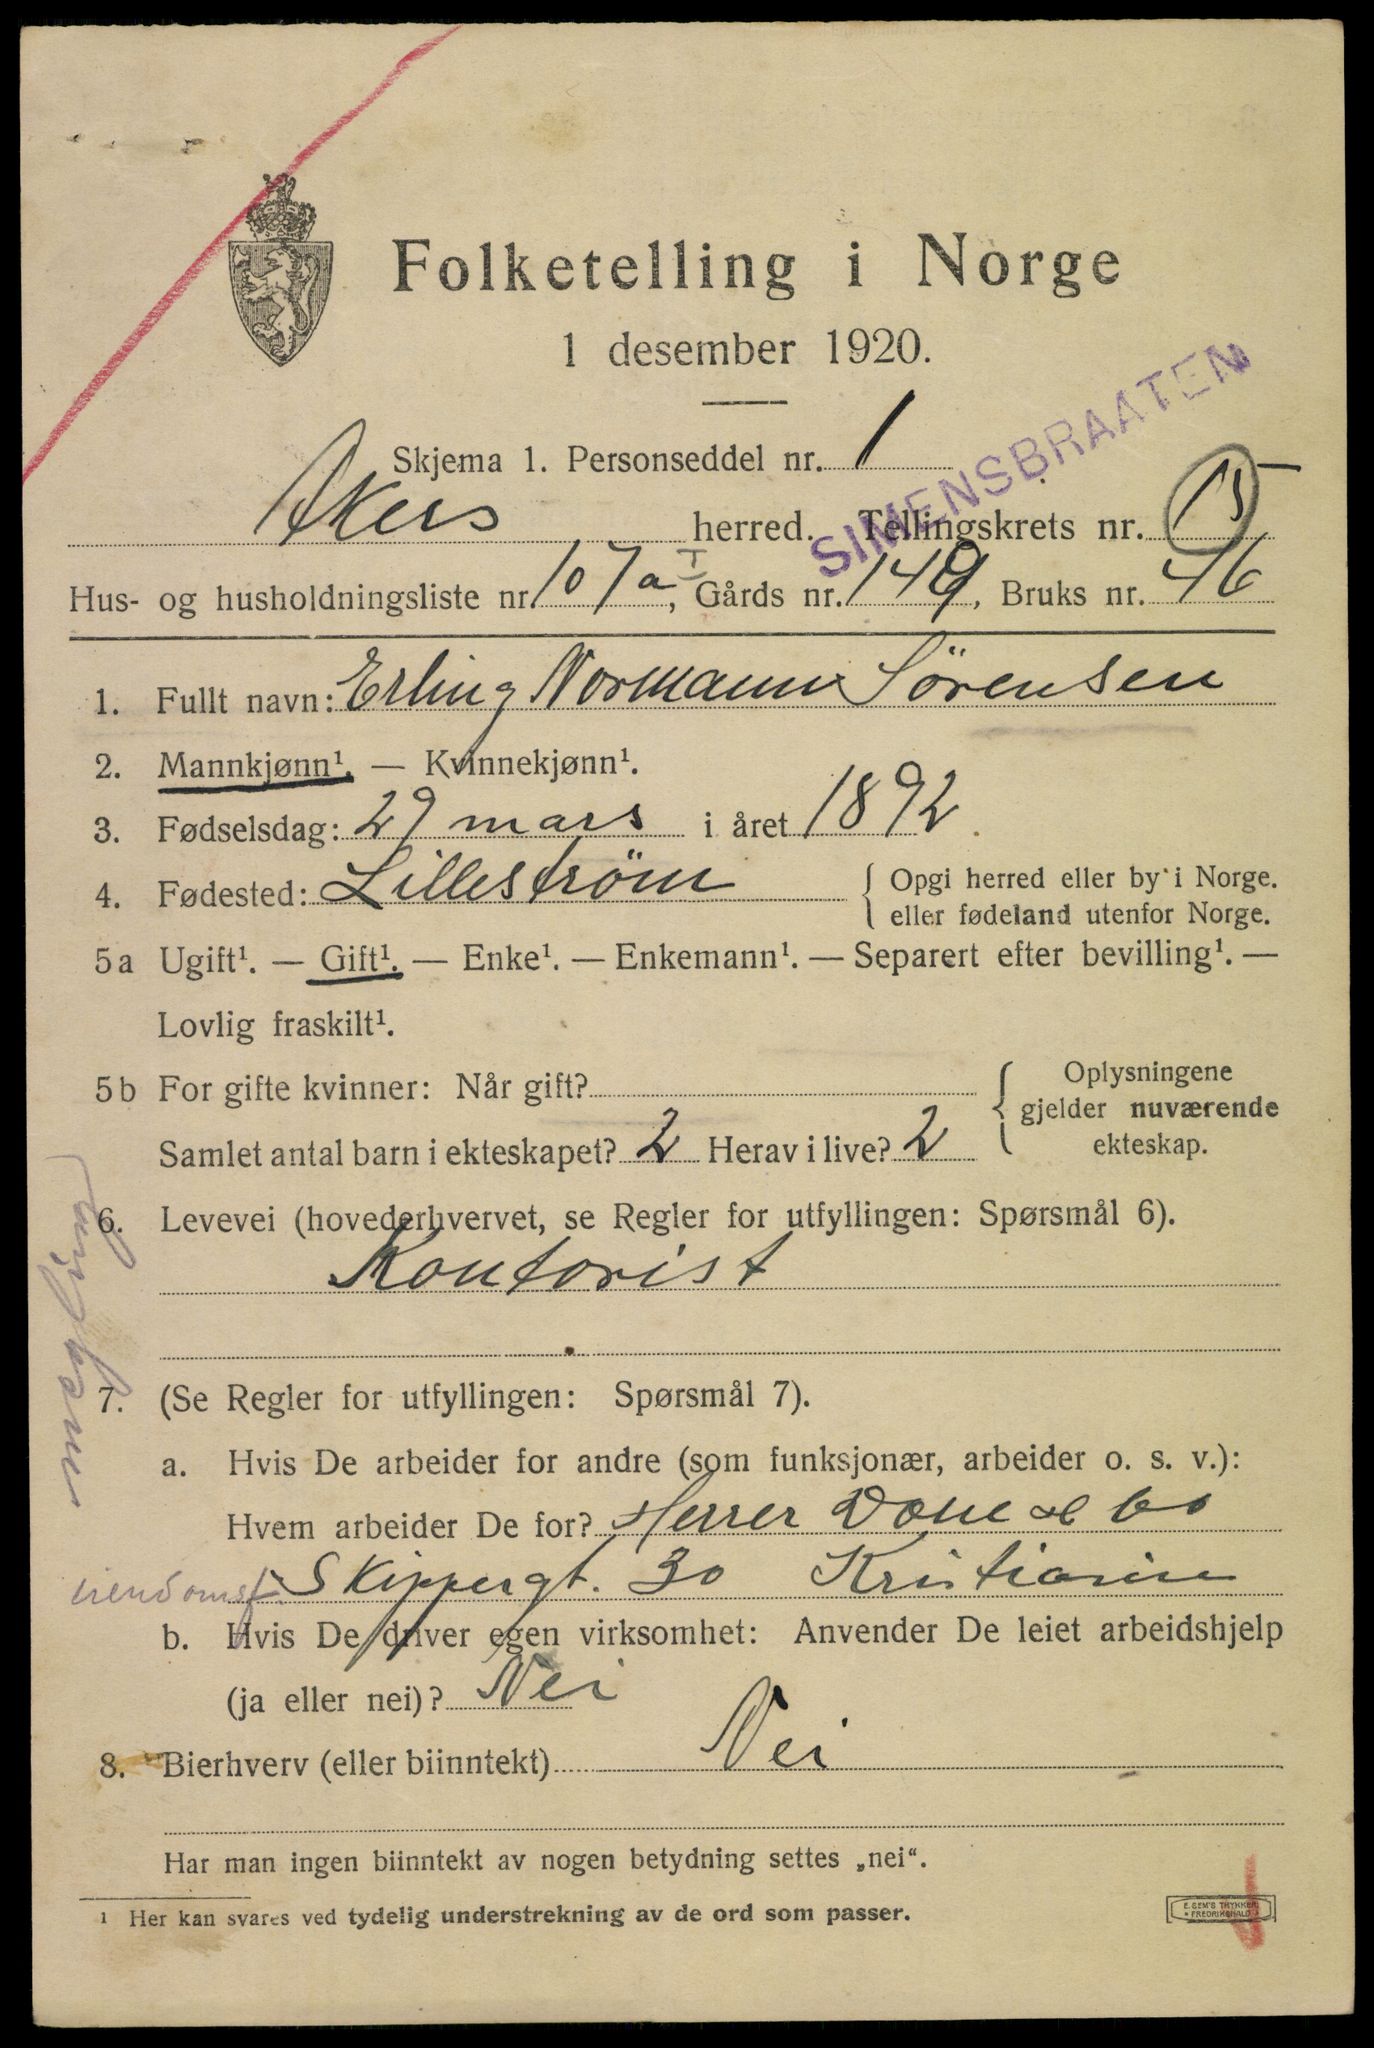 Folketelling i Norge
1 desember 1920.
Skjema 1. Personseddel nr. 1
SIMENSBRAATEN
Akers herred. Tellingskrets nr. 15
Hus- og husholdningsliste nr. 107a I, Gårds nr. 149, Bruks nr. 46
1. Fullt navn: Erling Normann Sørensen
2. Mannkjønn¹. — Kvinnekjønn¹.
3. Fødselsdag: 29 mars i året 1892.
4. Fødested: Lilleström { Opgi herred eller by i Norge.
eller fødeland utenfor Norge.
5a Ugift¹. — Gift¹. — Enke¹. — Enkemann¹. — Separert efter bevilling¹. —
Lovlig fraskilt¹.
5b For gifte kvinner: Når gift? { Oplysningene
gjelder nuværende
Samlet antal barn i ekteskapet? 2 Herav i live? 2 ekteskap.
6. Levevei (hovederhvervet, se Regler for utfyllingen: Spørsmål 6).
Kontorist
7. (Se Regler for utfyllingen: Spørsmål 7).
a. Hvis De arbeider for andre (som funksjonær, arbeider o. s. v.):
Hvem arbeider De for? Herrer & Co
Skippergt. 30 Kristiania
b. Hvis De driver egen virksomhet: Anvender De leiet arbeidshjelp
(ja eller nei)? Nei
8. Bierhverv (eller biinntekt) Nei
Har man ingen biinntekt av nogen betydning settes „nei“.
¹ Her kan svares ved tydelig understrekning av de ord som passer.
E. SEM'S TRYKKERI
FREDRIKSHALD